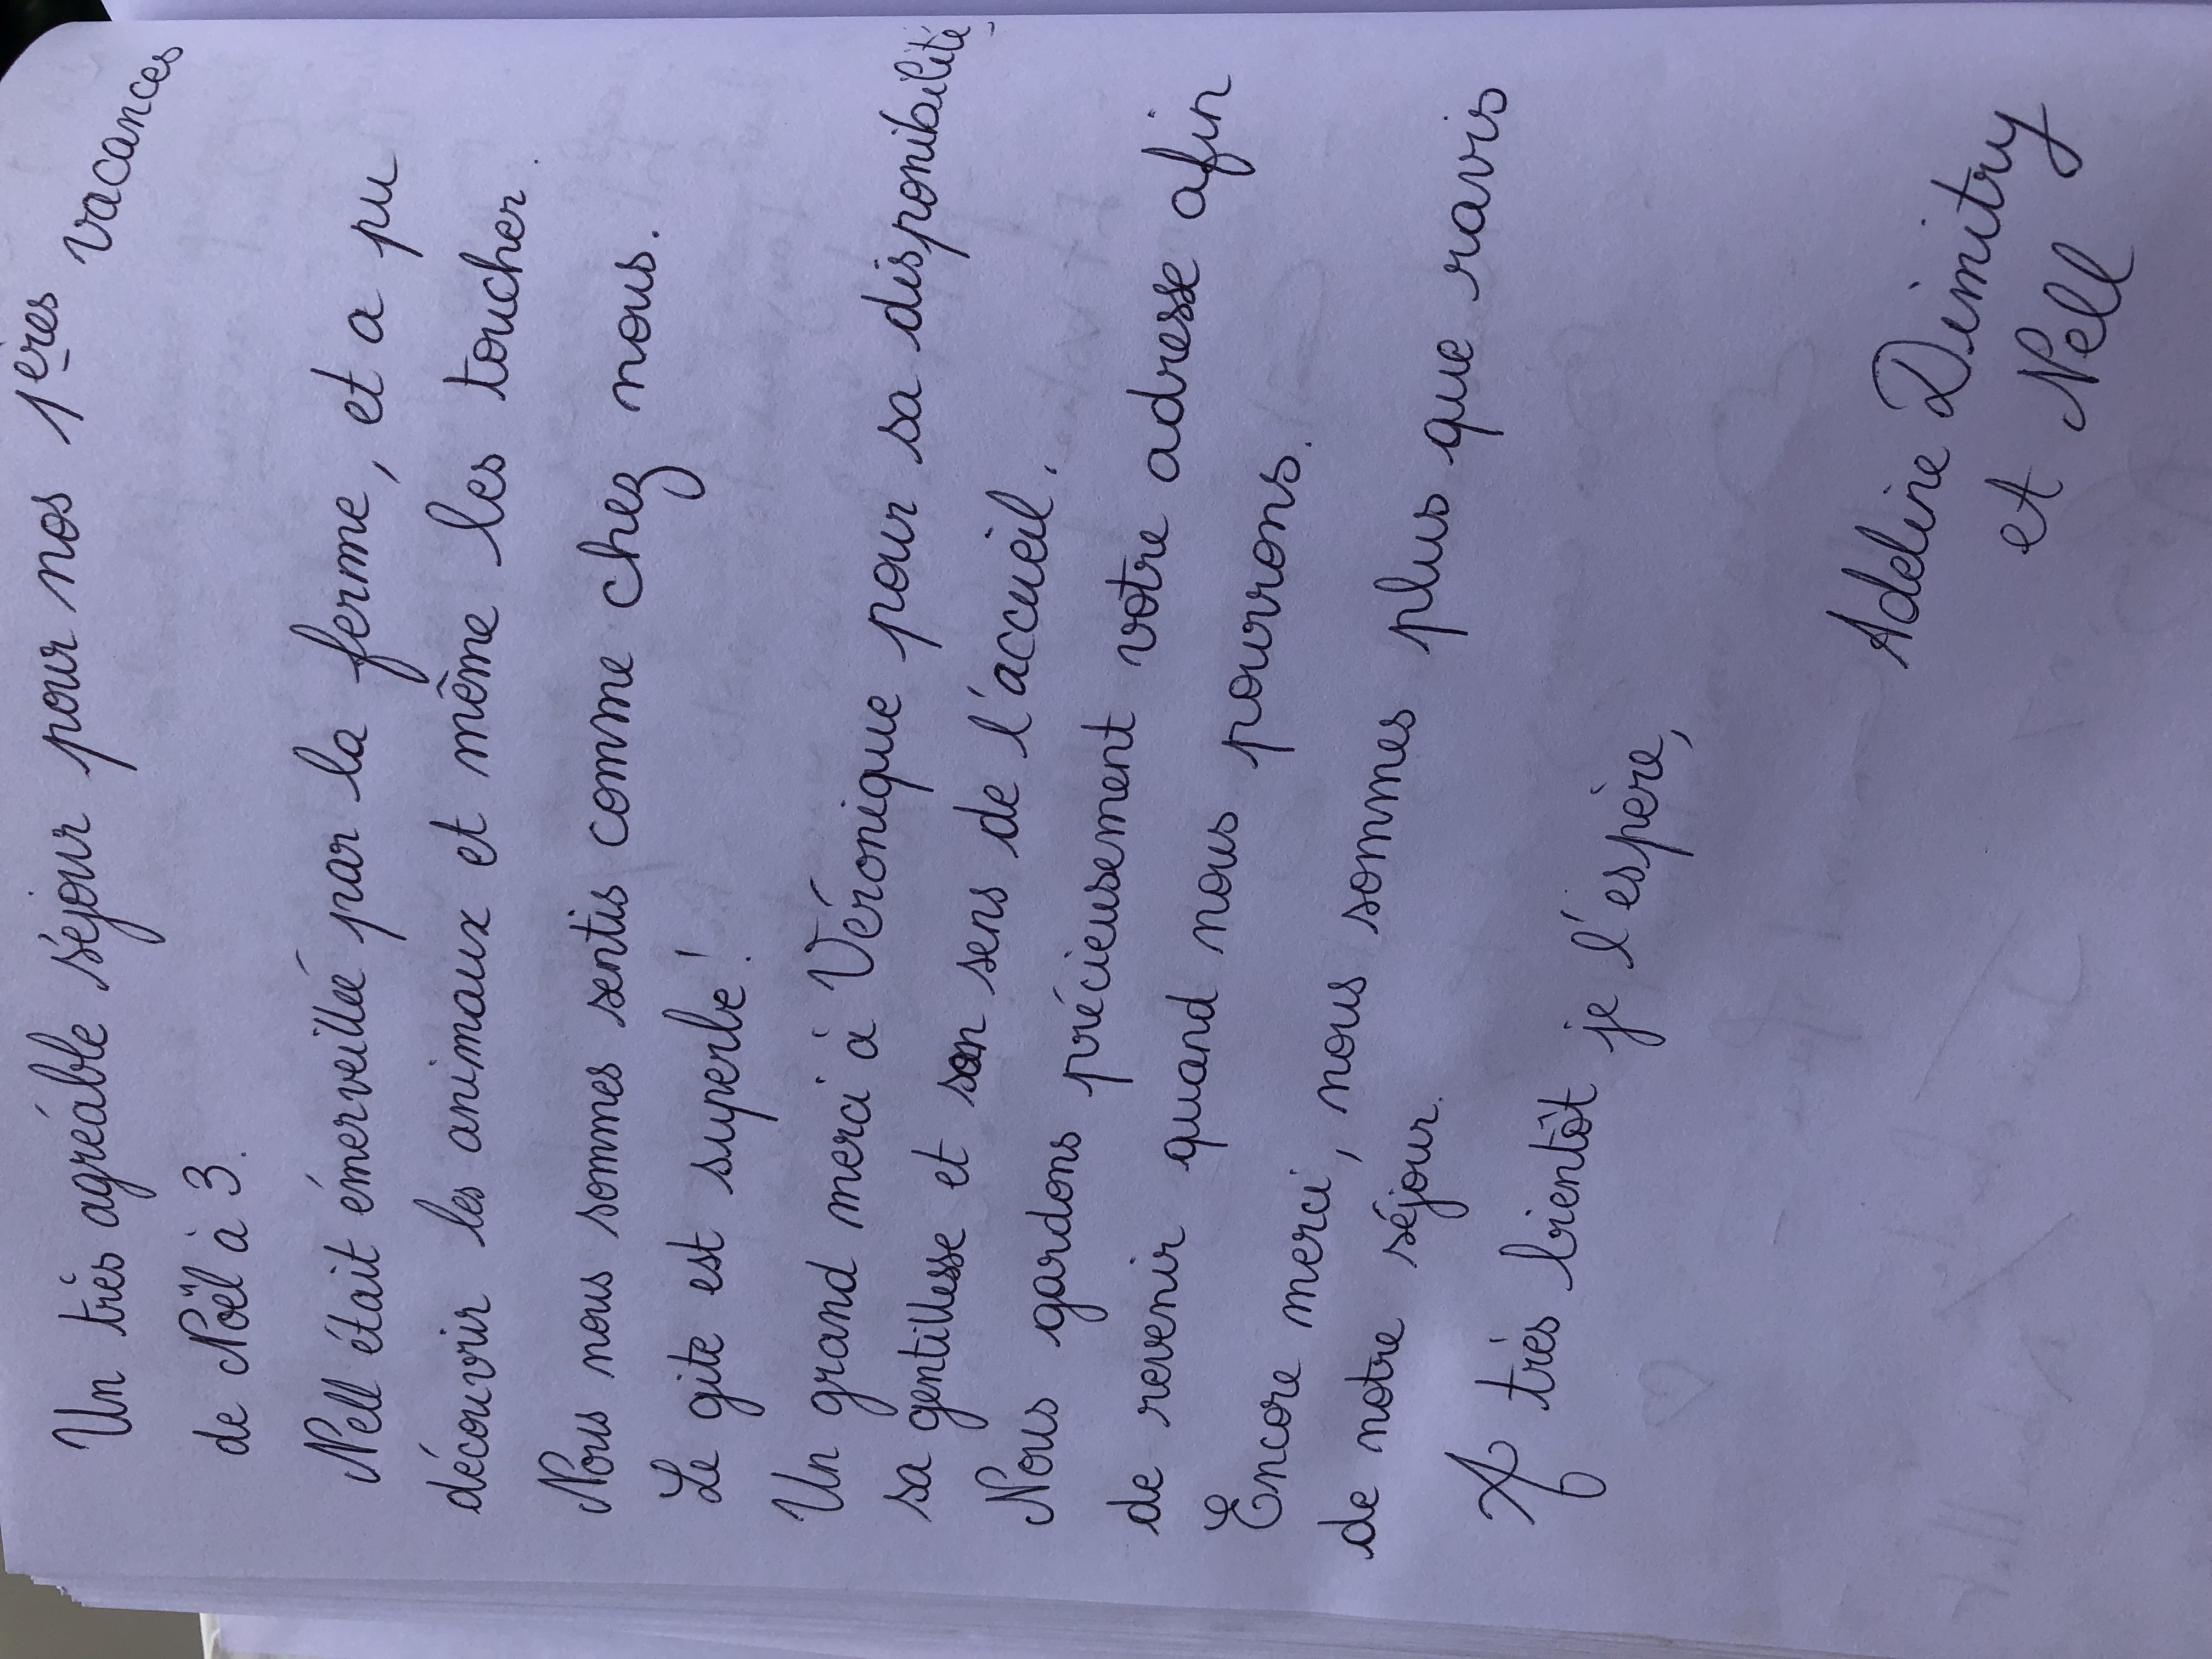 Un très agréable séjour pour nos 1ères vacances
de Noël à 3.
Nell était émerveillée par la ferme, et a pu
découvrir les animaux et même les toucher.
Nous nous sommes sentis comme chez nous.
Le gite est superbe !
Un grand merci à Véronique pour sa disponibilité,
sa gentillesse et son sens de l'accueil.
Nous gardons précieusement votre adresse afin
de revenir quand nous pourrons.
Encore merci, nous sommes plus que ravis
de notre séjour.
A très bientôt je l'espère,
Adeline Dimitry
et Nell